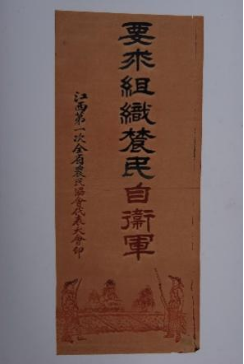 要求組織農民自衛軍
江西第一次全省農民協會代表大會印